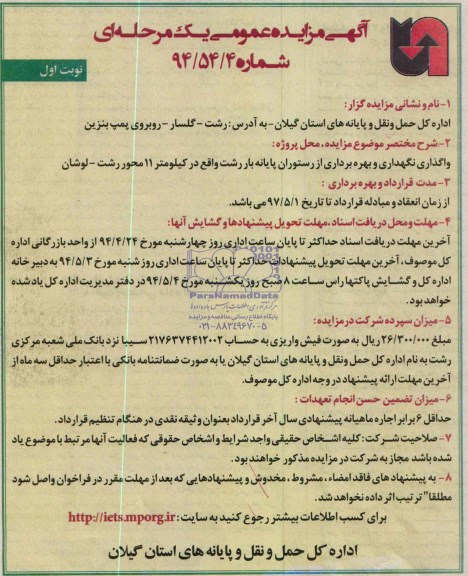 آگهی مزایده عمومی یک مرحله‌ای
شماره ۹۴/۵۴/۴
نوبت اول
۱- نام و نشانی مزایده گزار:
اداره کل حمل و نقل و پایانه های استان گیلان - به آدرس: رشت - گلسار - روبروی پمپ بنزین
۲- شرح مختصر موضوع مزایده، محل پروژه:
واگذاری نگهداری و بهره برداری از رستوران پایانه بار رشت واقع در کیلومتر ۱۱ محور رشت - لوشان
۳- مدت قرارداد و بهره برداری :
از زمان انعقاد و مبادله قرارداد تا تاریخ ۹۷/۵/۱ می باشد.
۴- مهلت و محل دریافت اسناد، مهلت تحویل پیشنهادها و گشایش آنها:
آخرین مهلت دریافت اسناد حداکثر تا پایان ساعت اداری روز چهارشنبه مورخ ۹۴/۴/۲۴ از واحد بازرگانی اداره
کل موصوف، آخرین مهلت تحویل پیشنهادات حداکثر تا پایان ساعت اداری روز شنبه مورخ ۹۴/۵/۳ به دبیر خانه
اداره کل و گشایش پاکتها راس ساعت ۸ صبح روز یکشنبه مورخ ۹۴/۵/۴ در دفتر مدیریت اداره کل یاد شده
خواهد بود.
ParsNamadData
پایگاه اطلاع رسانی مناقصه و مزایده
۰۲۱-۸۸۳۴۹۶۷۰-۵
۵- میزان سپرده شرکت در مزایده:
مبلغ ۲۶/۳۰۰/۰۰۰ ریال به صورت فیش واریزی به حساب ۲۱۷۶۳۷۴۴۱۲۰۰۲ سیبا نزد بانک ملی شعبه مرکزی
رشت به نام اداره کل حمل و نقل و پایانه های استان گیلان یا به صورت ضمانتنامه بانکی با اعتبار حداقل سه ماه از
آخرین مهلت ارائه پیشنهاد در وجه اداره کل موصوف.
۶- میزان تضمین حسن انجام تعهدات :
حداقل ۶ برابر اجاره ماهیانه پیشنهادی سال آخر قرارداد بعنوان وثیقه نقدی در هنگام تنظیم قرارداد.
۷- صلاحیت شرکت: کلیه اشخاص حقیقی واجد شرایط و اشخاص حقوقی که فعالیت آنها مرتبط با موضوع یاد
شده باشد مجاز به شرکت در مزایده مذکور خواهند بود.
۸- به پیشنهاد های فاقد امضاء، مشروط، مخدوش و پیشنهادهایی که بعد از مهلت مقرر در فراخوان واصل شود
مطلقا" ترتیب اثر داده نخواهد شد.
برای کسب اطلاعات بیشتر رجوع کنید به سایت: http://iets.mporg.ir
اداره کل حمل و نقل و پایانه های استان گیلان